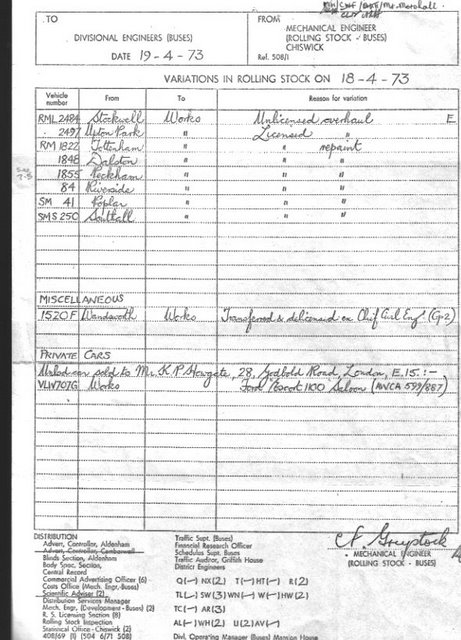 TO
DIVISIONAL ENGINEERS (BUSES)
DATE 19-4-73
FROM
MECHANICAL ENGINEER
(ROLLING STOCK - BUSES)
CHISWICK
Ref. 508/1
VARIATIONS IN ROLLING STOCK ON 18-4-73
Vehicle number From To Reason for variation
RML 2484 Stockwell Works Unlicensed overhaul E
" 2497 Upton Park " Licensed "
RM 1822 Tottenham " " repaint
1848 Dalston " " "
1855 Peckham " " "
84 Riverside " " "
SM 41 Poplar " " "
SMS 250 Southall " " "
MISCELLANEOUS
1520F Wandsworth Works Transferred & delicensed ex Chief Civil Engr (Gp2)
PRIVATE CARS
car sold to Mr. K.P. 28, Godbold Road, London, E.15. :-
VLW707G Works Ford Escort 1100 Saloon (AWCA 599/887)
DISTRIBUTION
Advert. Controller, Aldenham
Advert. Controller, Camberwell
Blinds Section, Aldenham
Body Spec. Section,
Central Record
Commercial Advertising Officer (6)
Scientific Adviser (2)
Distribution Services Manager
Mech. Engr. (Development - Buses) (2)
R. S. Licensing Section (8)
Rolling Stock Inspection
Statistical Office - Chiswick (2)
408/69 (1) (504 6/71 508)
Traffic Supt. (Buses)
Financial Research Officer
Schedules Supt. Buses
Traffic Auditor, Griffith House
District Engineers
Q(-) NX(2) T(-) HT(-) R(2)
TL(-) SW(3) WN(-) W(-) HW(2)
TC(-) AR(3)
AL(-) WH(2) U(2) AV(-)
Divl. Operating Manager (Buses) Mansion House
C. F. Greystock
MECHANICAL ENGINEER
(ROLLING STOCK - BUSES)